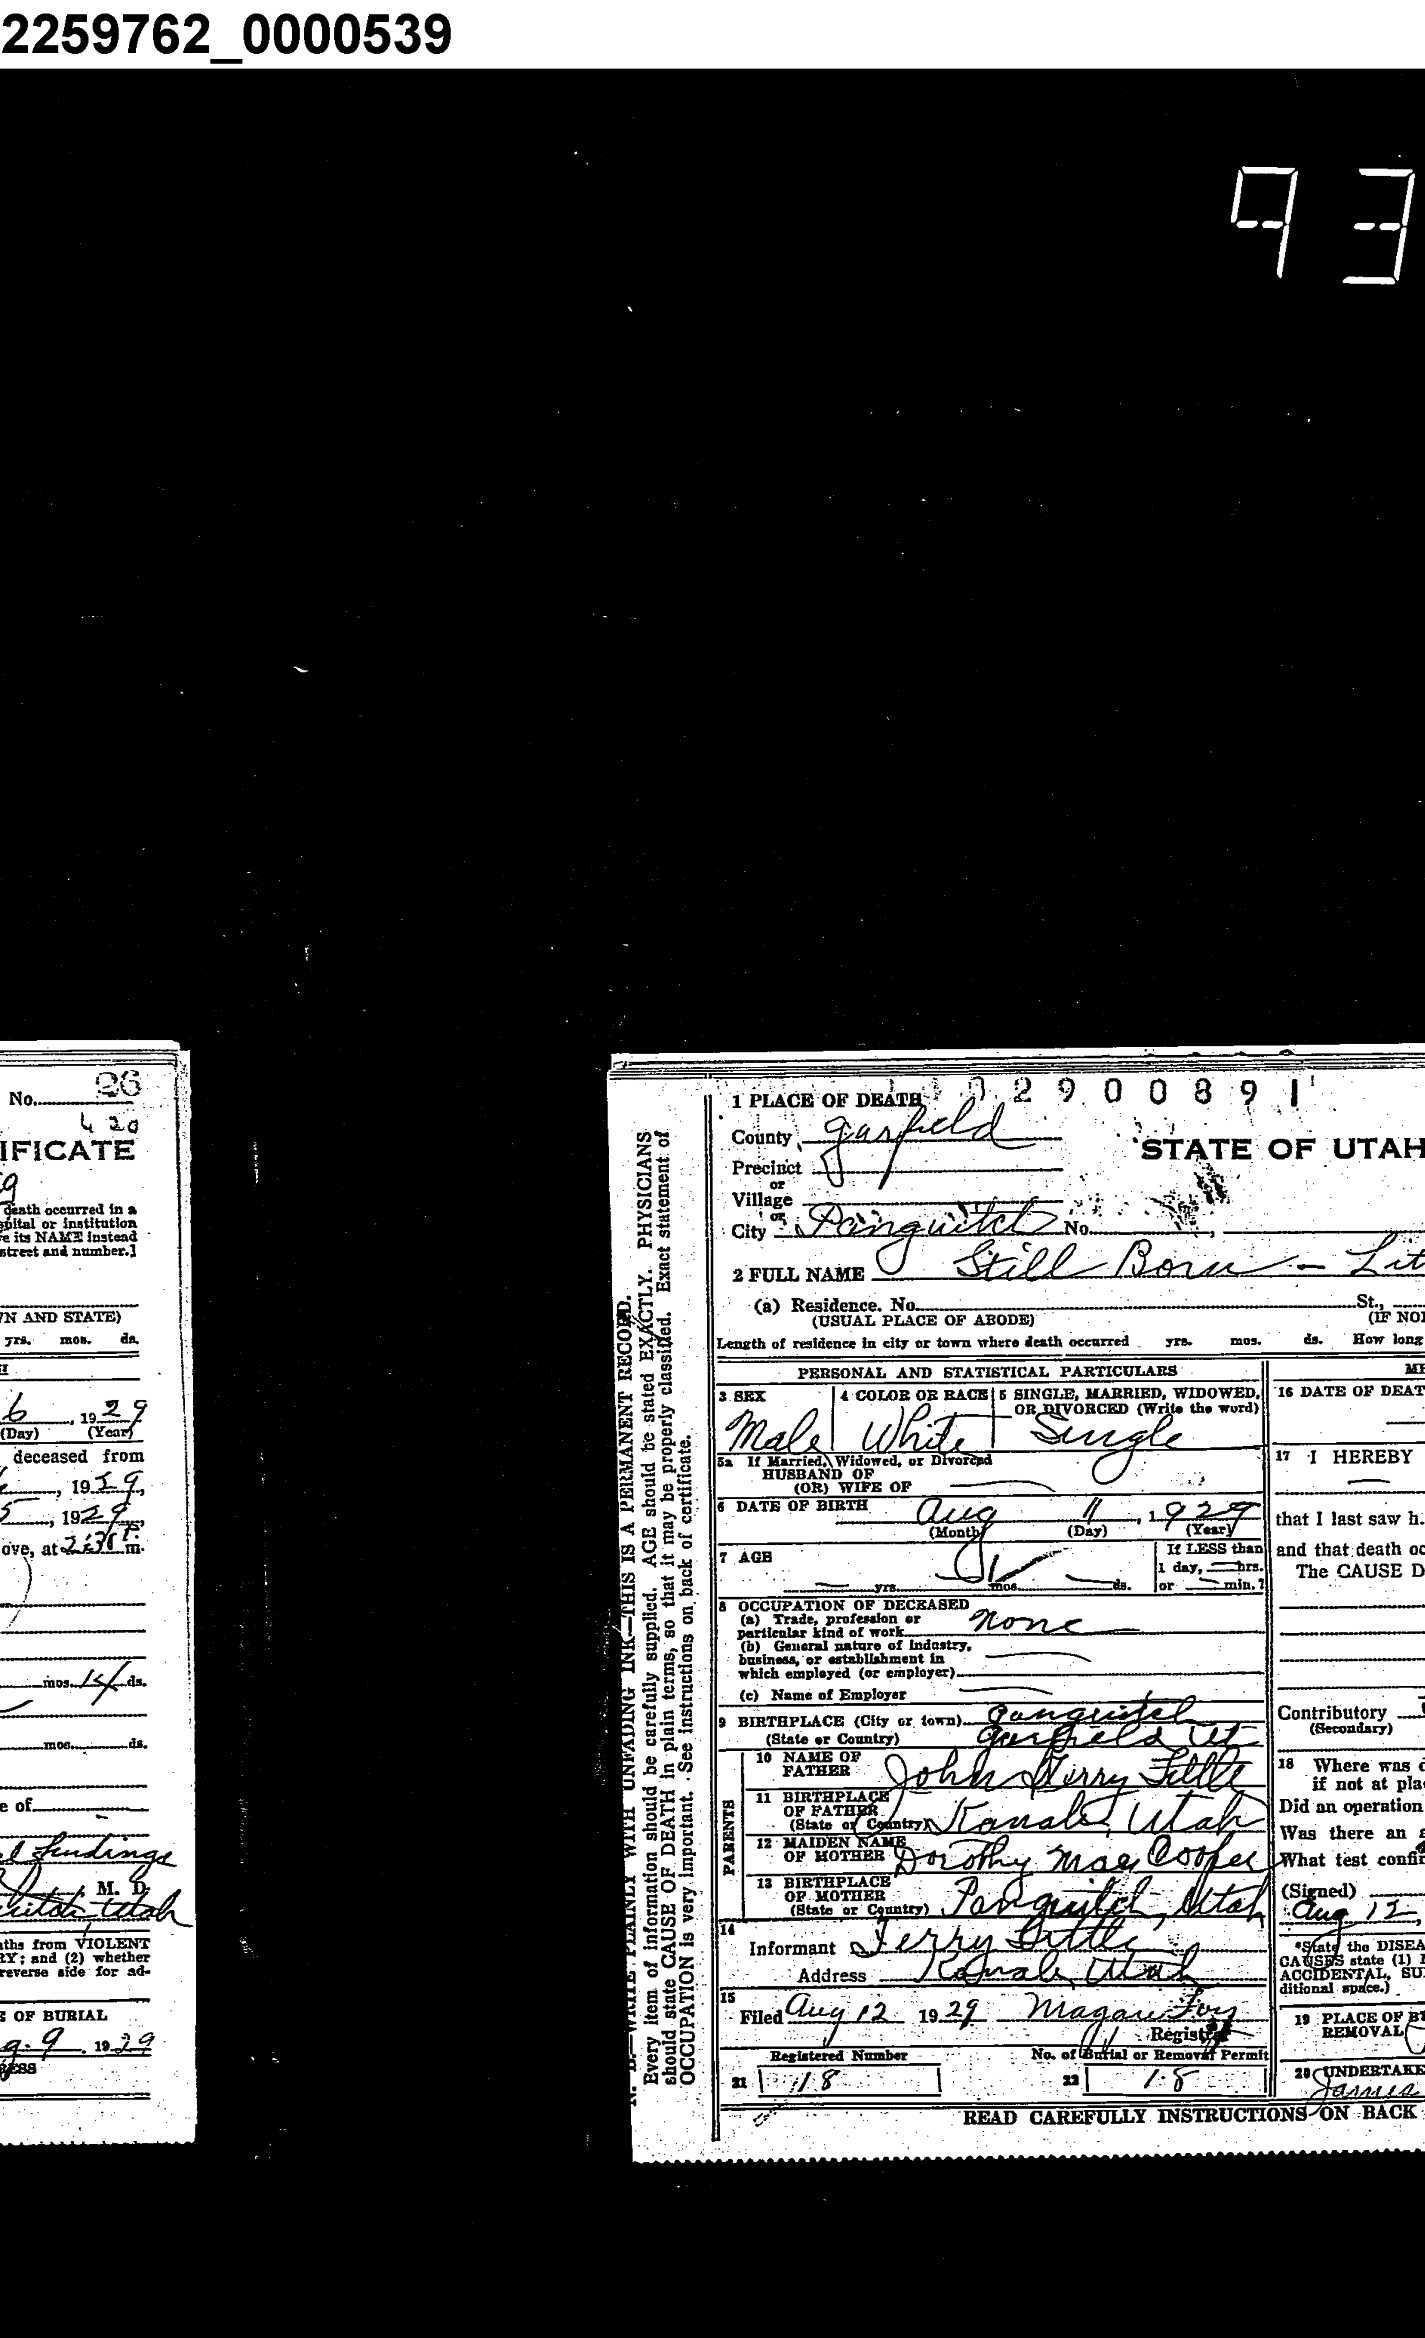 2259762_0000539
93
No. 26
4 20
IFICATE
death occurred in a
spital or institution
e its NAME instead
street and number.]
VN AND STATE)
yrs. mos. ds.
H
6, 1929
(Day) (Year)
deceased from
, 1929,
5, 1929,
ove, at m.
mos. 14 ds.
mos. ds.
e of
Findings
M. D.
Utah
ths from VIOLENT
RY; and (2) whether
reverse side for ad-
E OF BURIAL
g. 9, 1929
RESS
N. B.—WRITE PLAINLY WITH UNFADING INK—THIS IS A PERMANENT RECORD.
Every item of information should be carefully supplied. AGE should be stated EXACTLY. PHYSICIANS
should state CAUSE OF DEATH in plain terms, so that it may be properly classified. Exact statement of
OCCUPATION is very important. See instructions on back of certificate.
2900891
1 PLACE OF DEATH
County Garfield
STATE OF UTAH
Precinct
or
Village
or
City Panguitch No.
2 FULL NAME Still Born - Lit
(a) Residence. No. St.,
(USUAL PLACE OF ABODE) (IF NON
Length of residence in city or town where death occurred yrs. mos. ds. How long
PERSONAL AND STATISTICAL PARTICULARS
3 SEX
Male
4 COLOR OR RACE
White
5 SINGLE, MARRIED, WIDOWED,
OR DIVORCED (Write the word)
Single
5a If Married, Widowed, or Divorced
HUSBAND OF
(OR) WIFE OF
6 DATE OF BIRTH Aug 11, 1929
(Month) (Day) (Year)
7 AGE
yrs. mos. ds.
If LESS than
1 day, hrs.
or min.?
8 OCCUPATION OF DECEASED
(a) Trade, profession or
particular kind of work None
(b) General nature of industry,
business, or establishment in
which employed (or employer)
(c) Name of Employer
9 BIRTHPLACE (City or town) Panguitch
(State or Country) Garfield Ut
PARENTS
10 NAME OF
FATHER John Terry Little
11 BIRTHPLACE
OF FATHER
(State or Country) Kanab, Utah
12 MAIDEN NAME
OF MOTHER Dorothy Mae Cooper
13 BIRTHPLACE
OF MOTHER
(State or Country) Panguitch, Utah
14
Informant Terry Little
Address Kanab, Utah
15
Filed Aug 12 1929
Registrar
Registered Number
21 18
No. of Burial or Removal Permit
22 18
ME
16 DATE OF DEAT
17 I HEREBY
that I last saw h
and that death oc
The CAUSE D
Contributory
(Secondary)
18 Where was d
if not at pla
Did an operation
Was there an a
What test confir
(Signed)
Aug 12,
*State the DISEA
CAUSES state (1)
ACCIDENTAL, SU
ditional space.)
19 PLACE OF B
REMOVAL
20 UNDERTAKE
James
READ CAREFULLY INSTRUCTIONS ON BACK